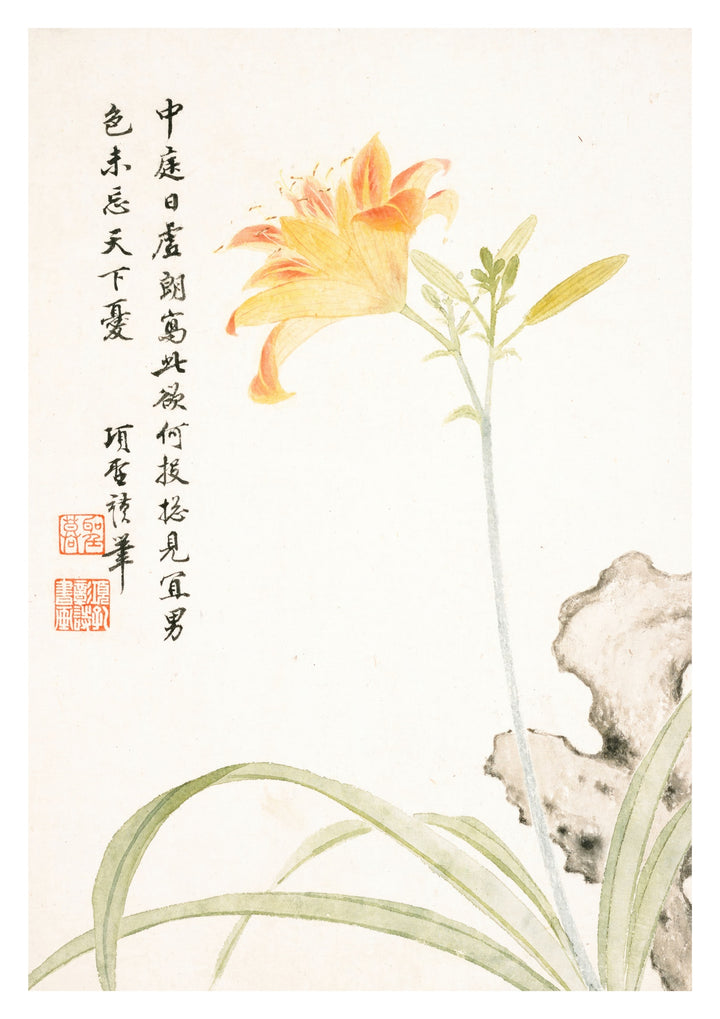 中庭日虛朗寫此欲何投捴見宜男
色未忘天下憂
項聖謨筆
項孔彰詩書畫